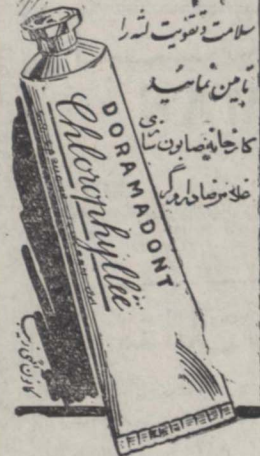 سلامت و تقویت لثه را
تأمین نمائید
کارخانه صابون سازی
غلامرضا داروگر
DORAMADONT
Chlorophyllée